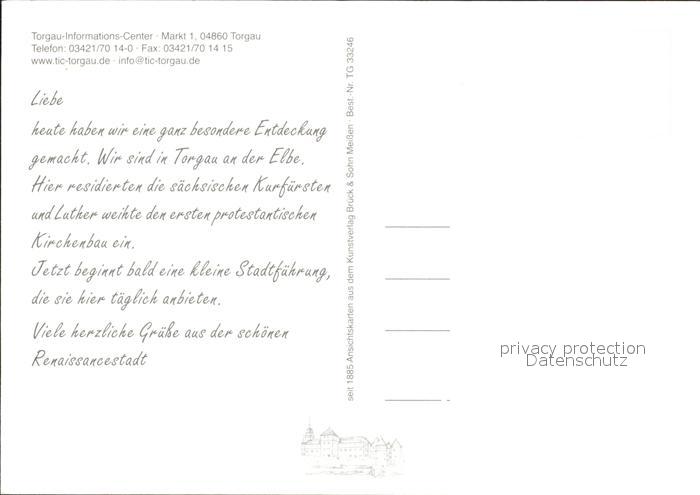 Torgau-Informations-Center · Markt 1, 04860 Torgau
Telefon: 03421/70 14-0 · Fax: 03421/70 14 15
www.tic-torgau.de · info@tic-torgau.de
Liebe
heute haben wir eine ganz besondere Entdeckung
gemacht. Wir sind in Torgau an der Elbe.
Hier residierten die sächsischen Kurfürsten
und Luther weihte den ersten protestantischen
Kirchenbau ein.
Jetzt beginnt bald eine kleine Stadtführung,
die sie hier täglich anbieten.
Viele herzliche Grüße aus der schönen
Renaissancestadt
seit 1885 Ansichtskarten aus dem Kunstverlag Brück & Sohn Meißen · Best.-Nr. TG 33246
privacy protection
Datenschutz